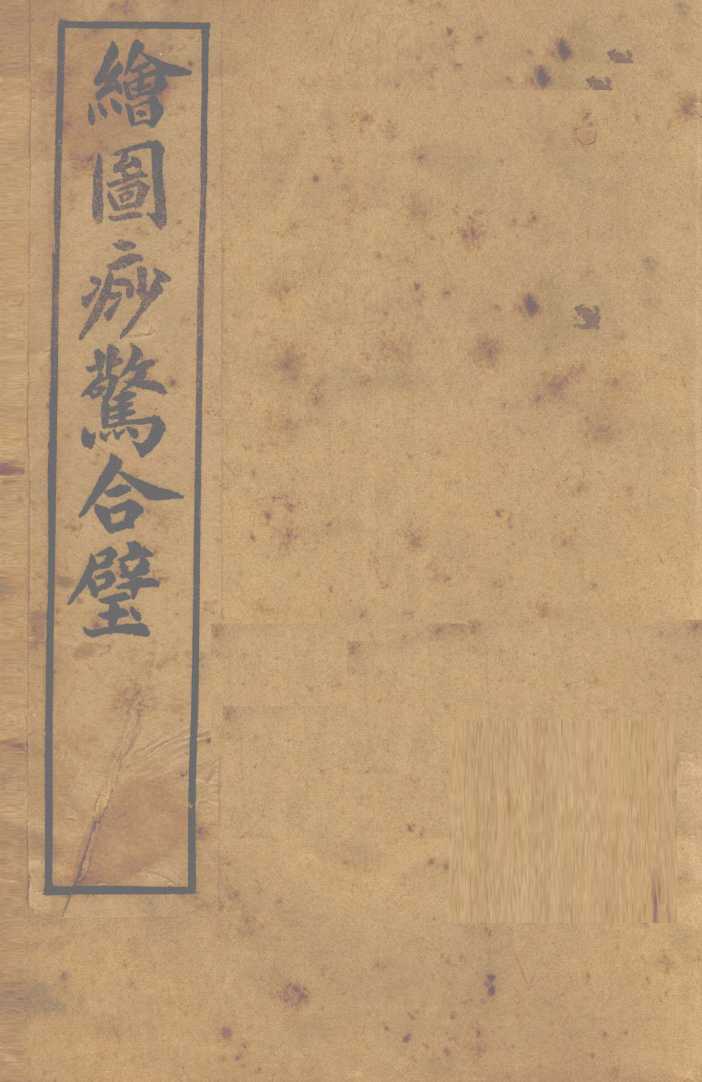 繪圖痧驚合璧